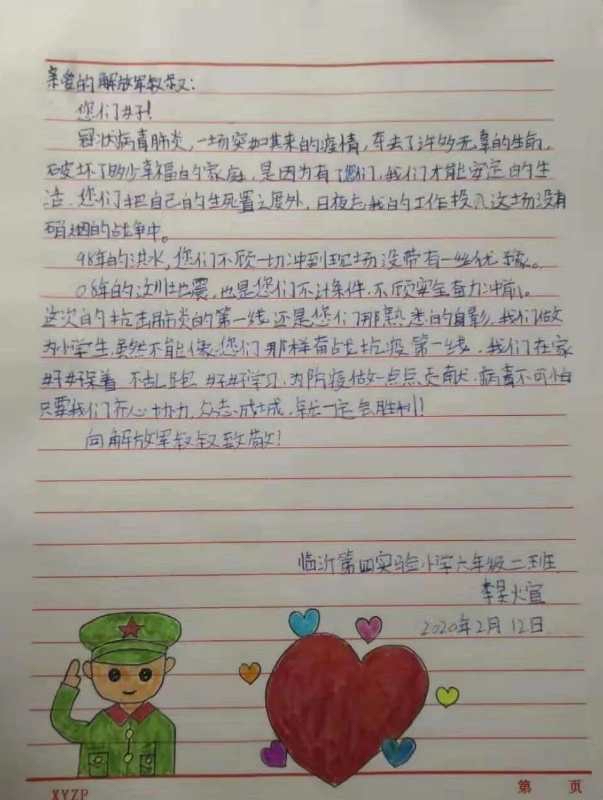 亲爱的解放军叔叔:
您们好!
冠状病毒肺炎,一场突如其来的疫情,夺去了许多无辜的生命,
破坏了多少幸福的家庭,是因为有了您们,我们才能安定的生
活,您们把自己的生死置之度外,日夜忘我的工作投入这场没有
硝烟的战争中。
98年的洪水,您们不顾一切冲到现场没带有一丝犹豫。
08年的汶川地震,也是您们不计条件,不顾安全奋力冲前。
这次的抗击肺炎的第一线还是您们那熟悉的身影,我们做
为小学生,虽然不能像您们那样奋战抗疫第一线,我们在家
好好待着,不乱跑,好好学习,为防疫做一点点贡献,病毒不可怕
只要我们齐心协力,众志成城,就一定会胜利!
向解放军叔叔致敬!
临沂第四实验小学六年级二班
李昊宣
2020年2月12日
XYZP
第 页